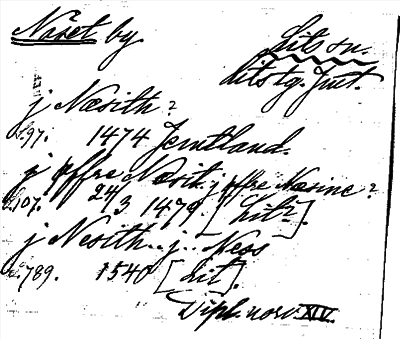 Näset by.
Lits sn.
Lits tg. Jmt.
j Næsith?
s. 97. 1474 Jemtland.
j øffre Næsit, j øffre Næsine?
s. 107. 24/3 1479. [Lits].
j Nesith.. j.. Ness
s. 789. 1540 [Lit].
Dipl. norv. XIV.